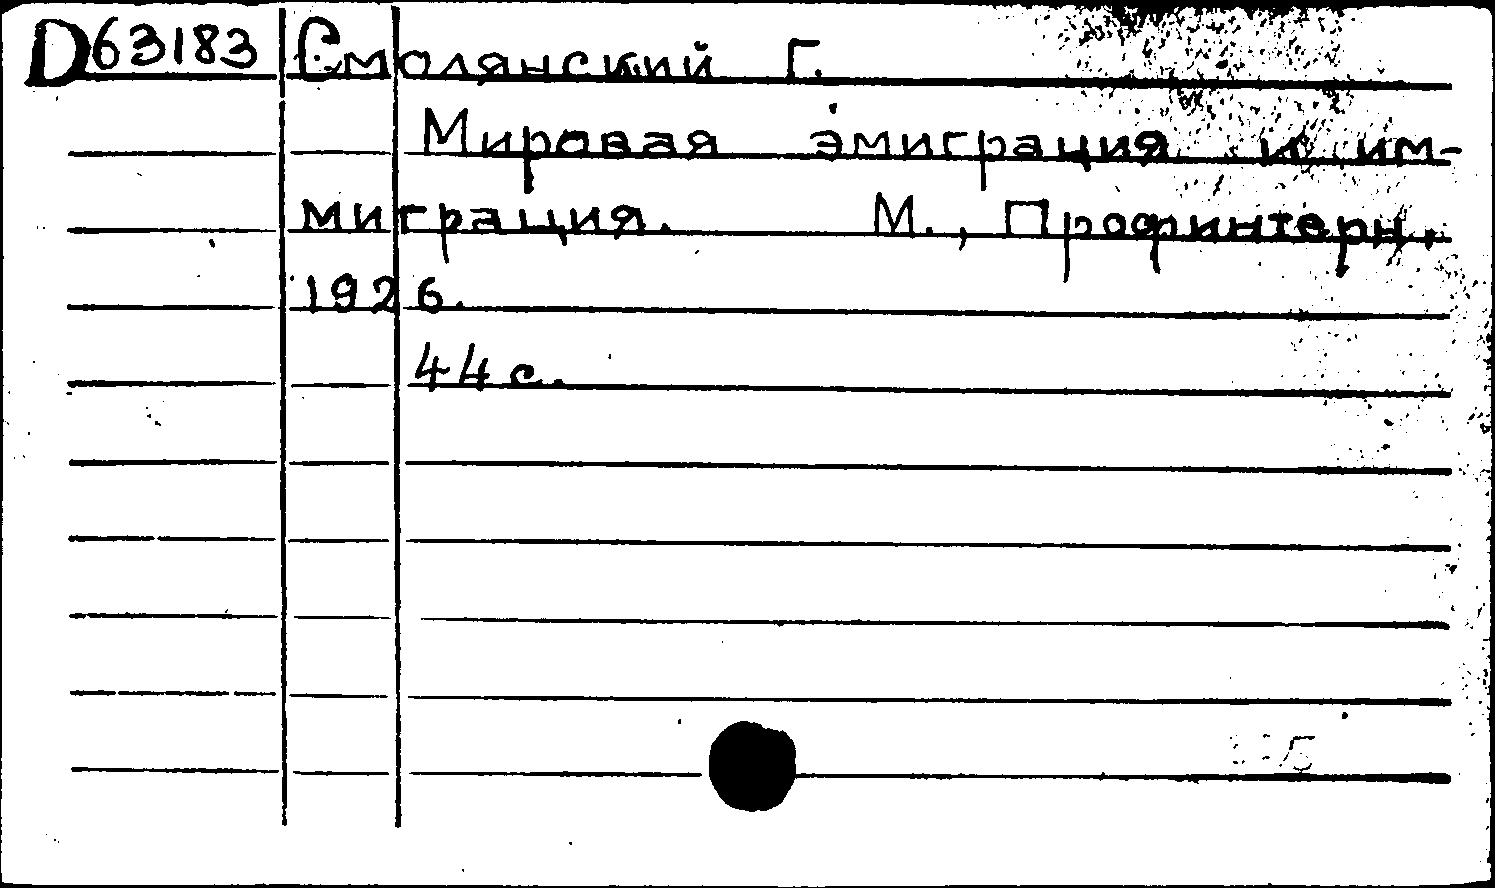 D63183 Смолянский Г.
Мировая эмиграция и им-
миграция. М., Профинтерн,
1926.
44 с.